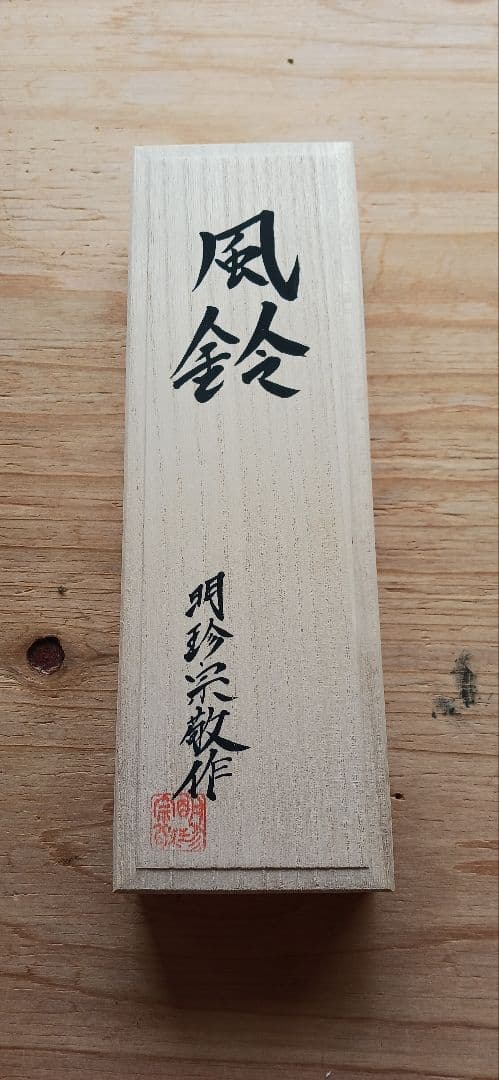 風鈴
明珍宗敬作